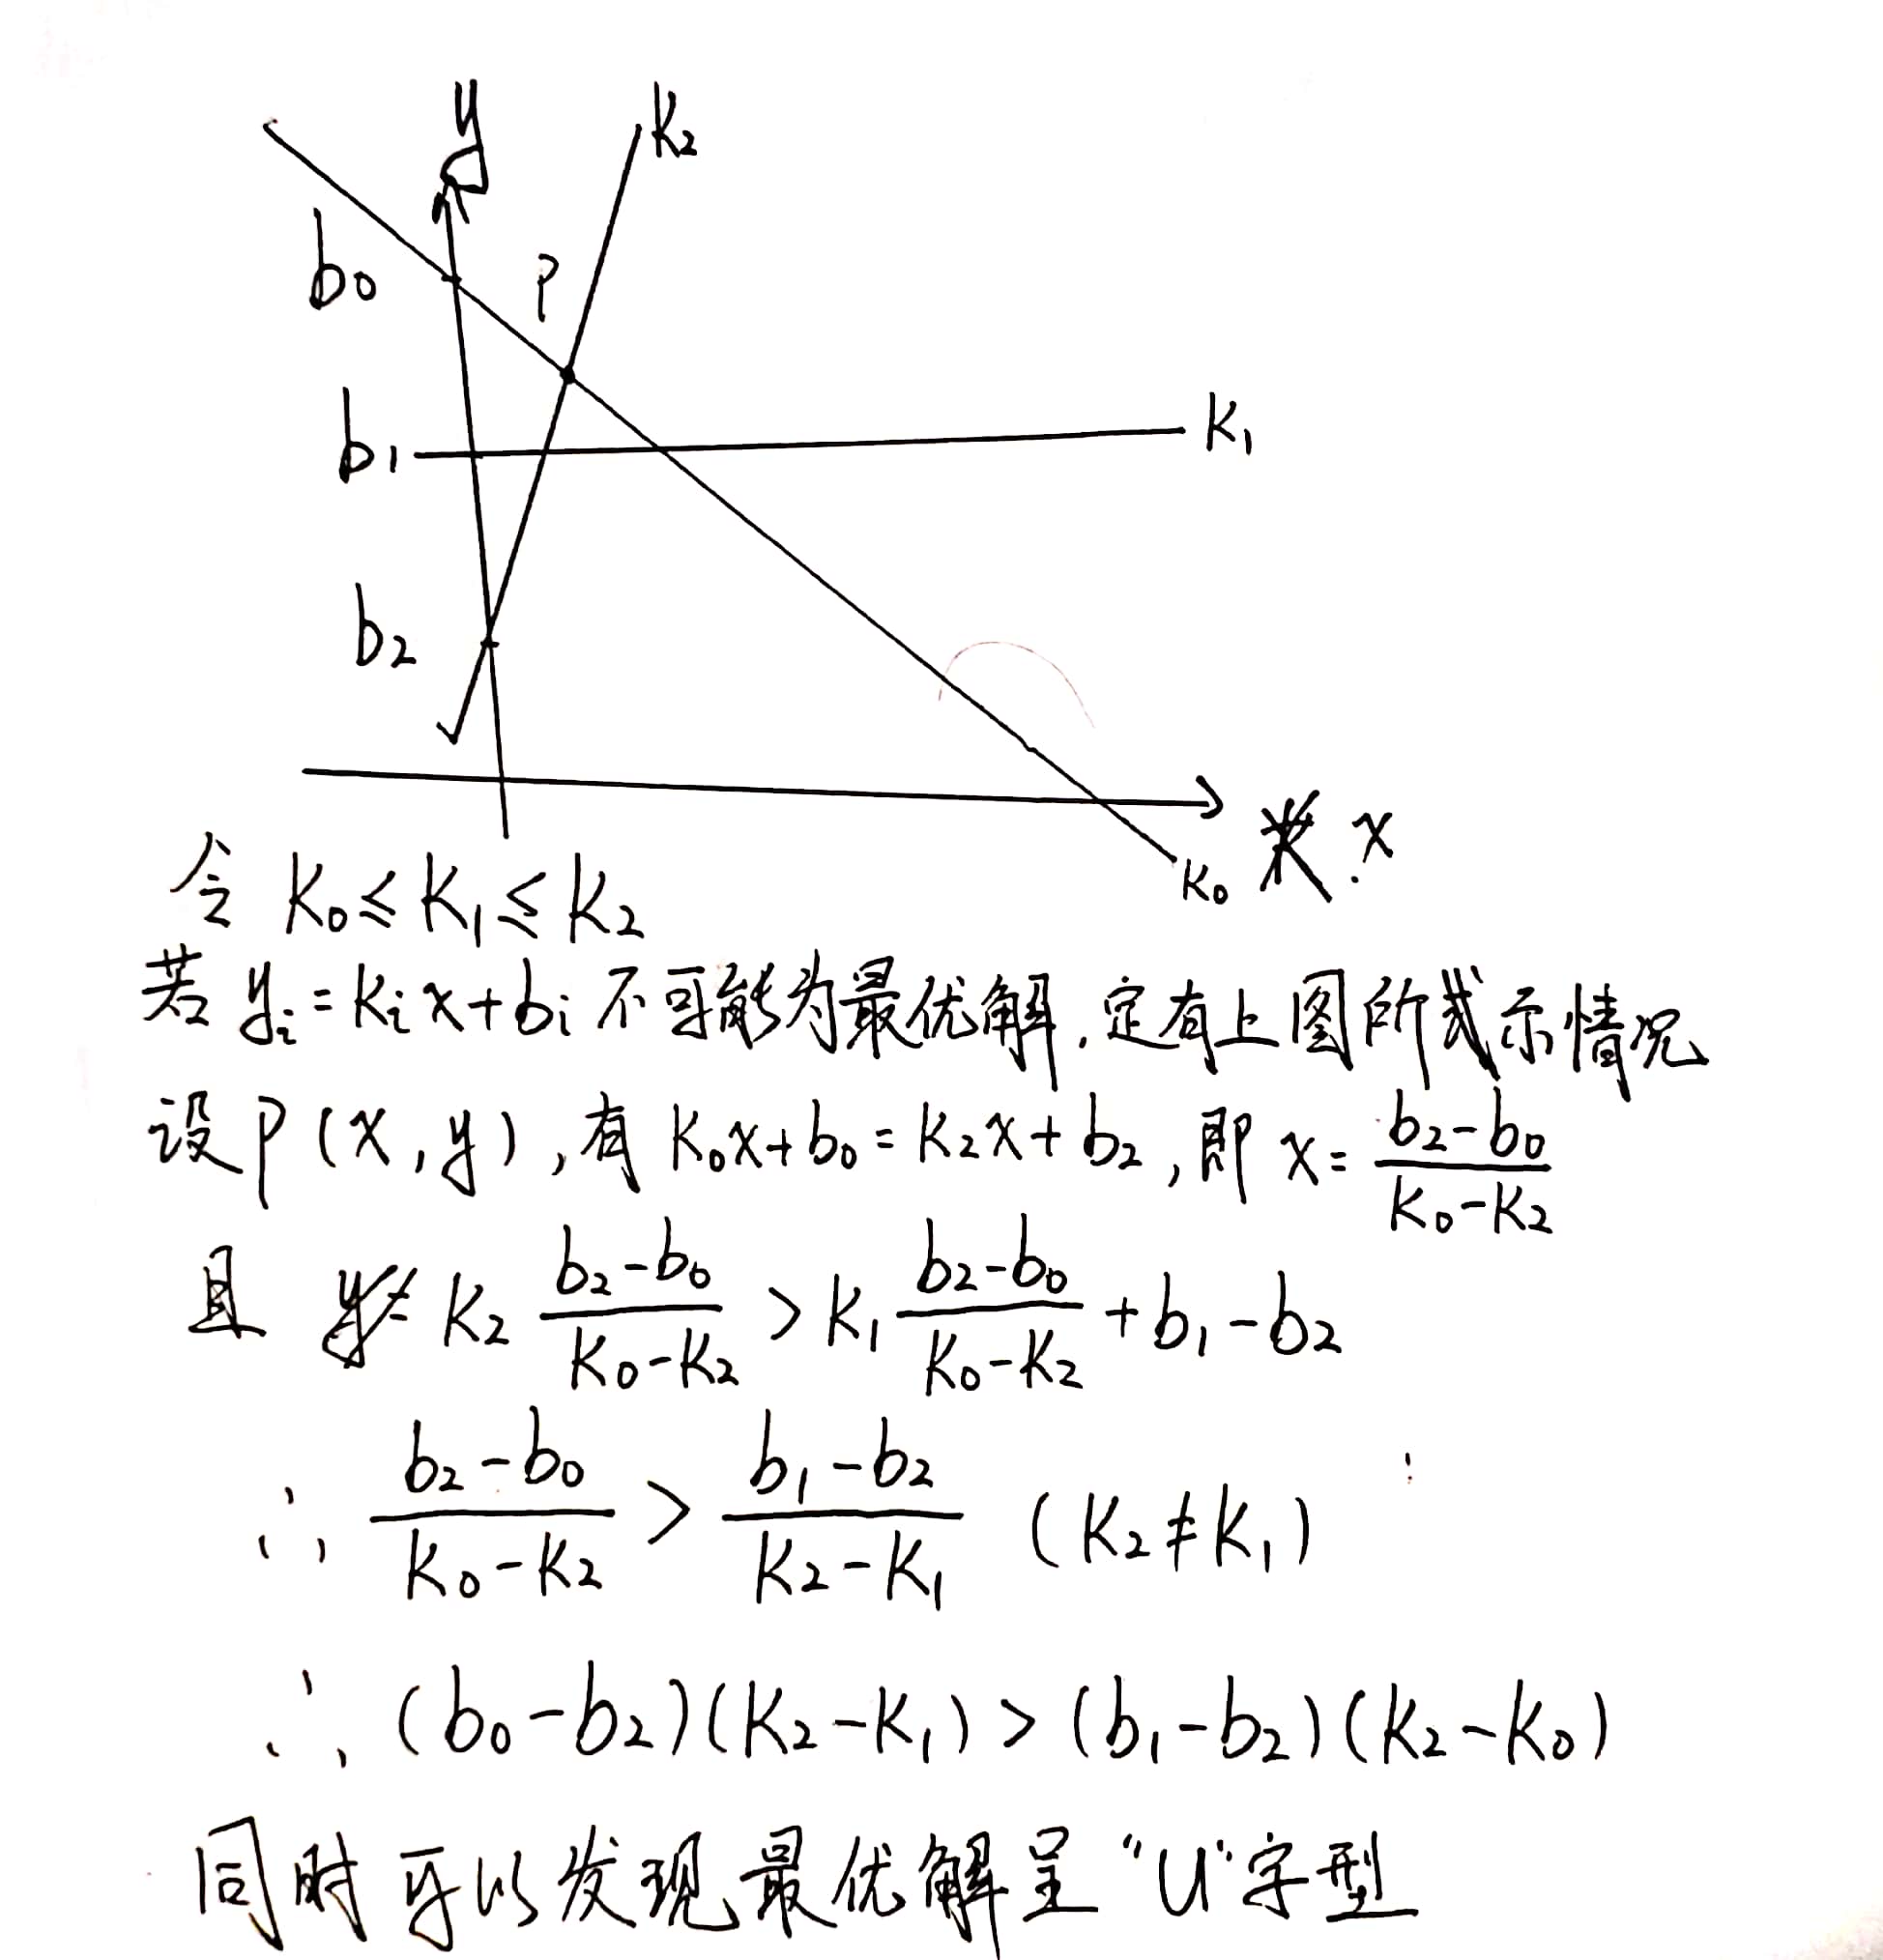 y
k₂
b₀
P
b₁
k₁
b₂
x
k₀
令 k₀≤k₁≤k₂
若 yᵢ=kᵢx+bᵢ 不可能为最优解,定有上图所示情况
设P(x,y),有 k₀x+b₀=k₂x+b₂,即 x=\frac{b₂-b₀}{k₀-k₂}
且 k₂\frac{b₂-b₀}{k₀-k₂}>k₁\frac{b₂-b₀}{k₀-k₂}+b₁-b₂
∴ \frac{b₂-b₀}{k₀-k₂}>\frac{b₁-b₂}{k₂-k₁} (k₂≠k₁)
∴ (b₀-b₂)(k₂-k₁)>(b₁-b₂)(k₂-k₀)
同时可以发现最优解呈“U”字型